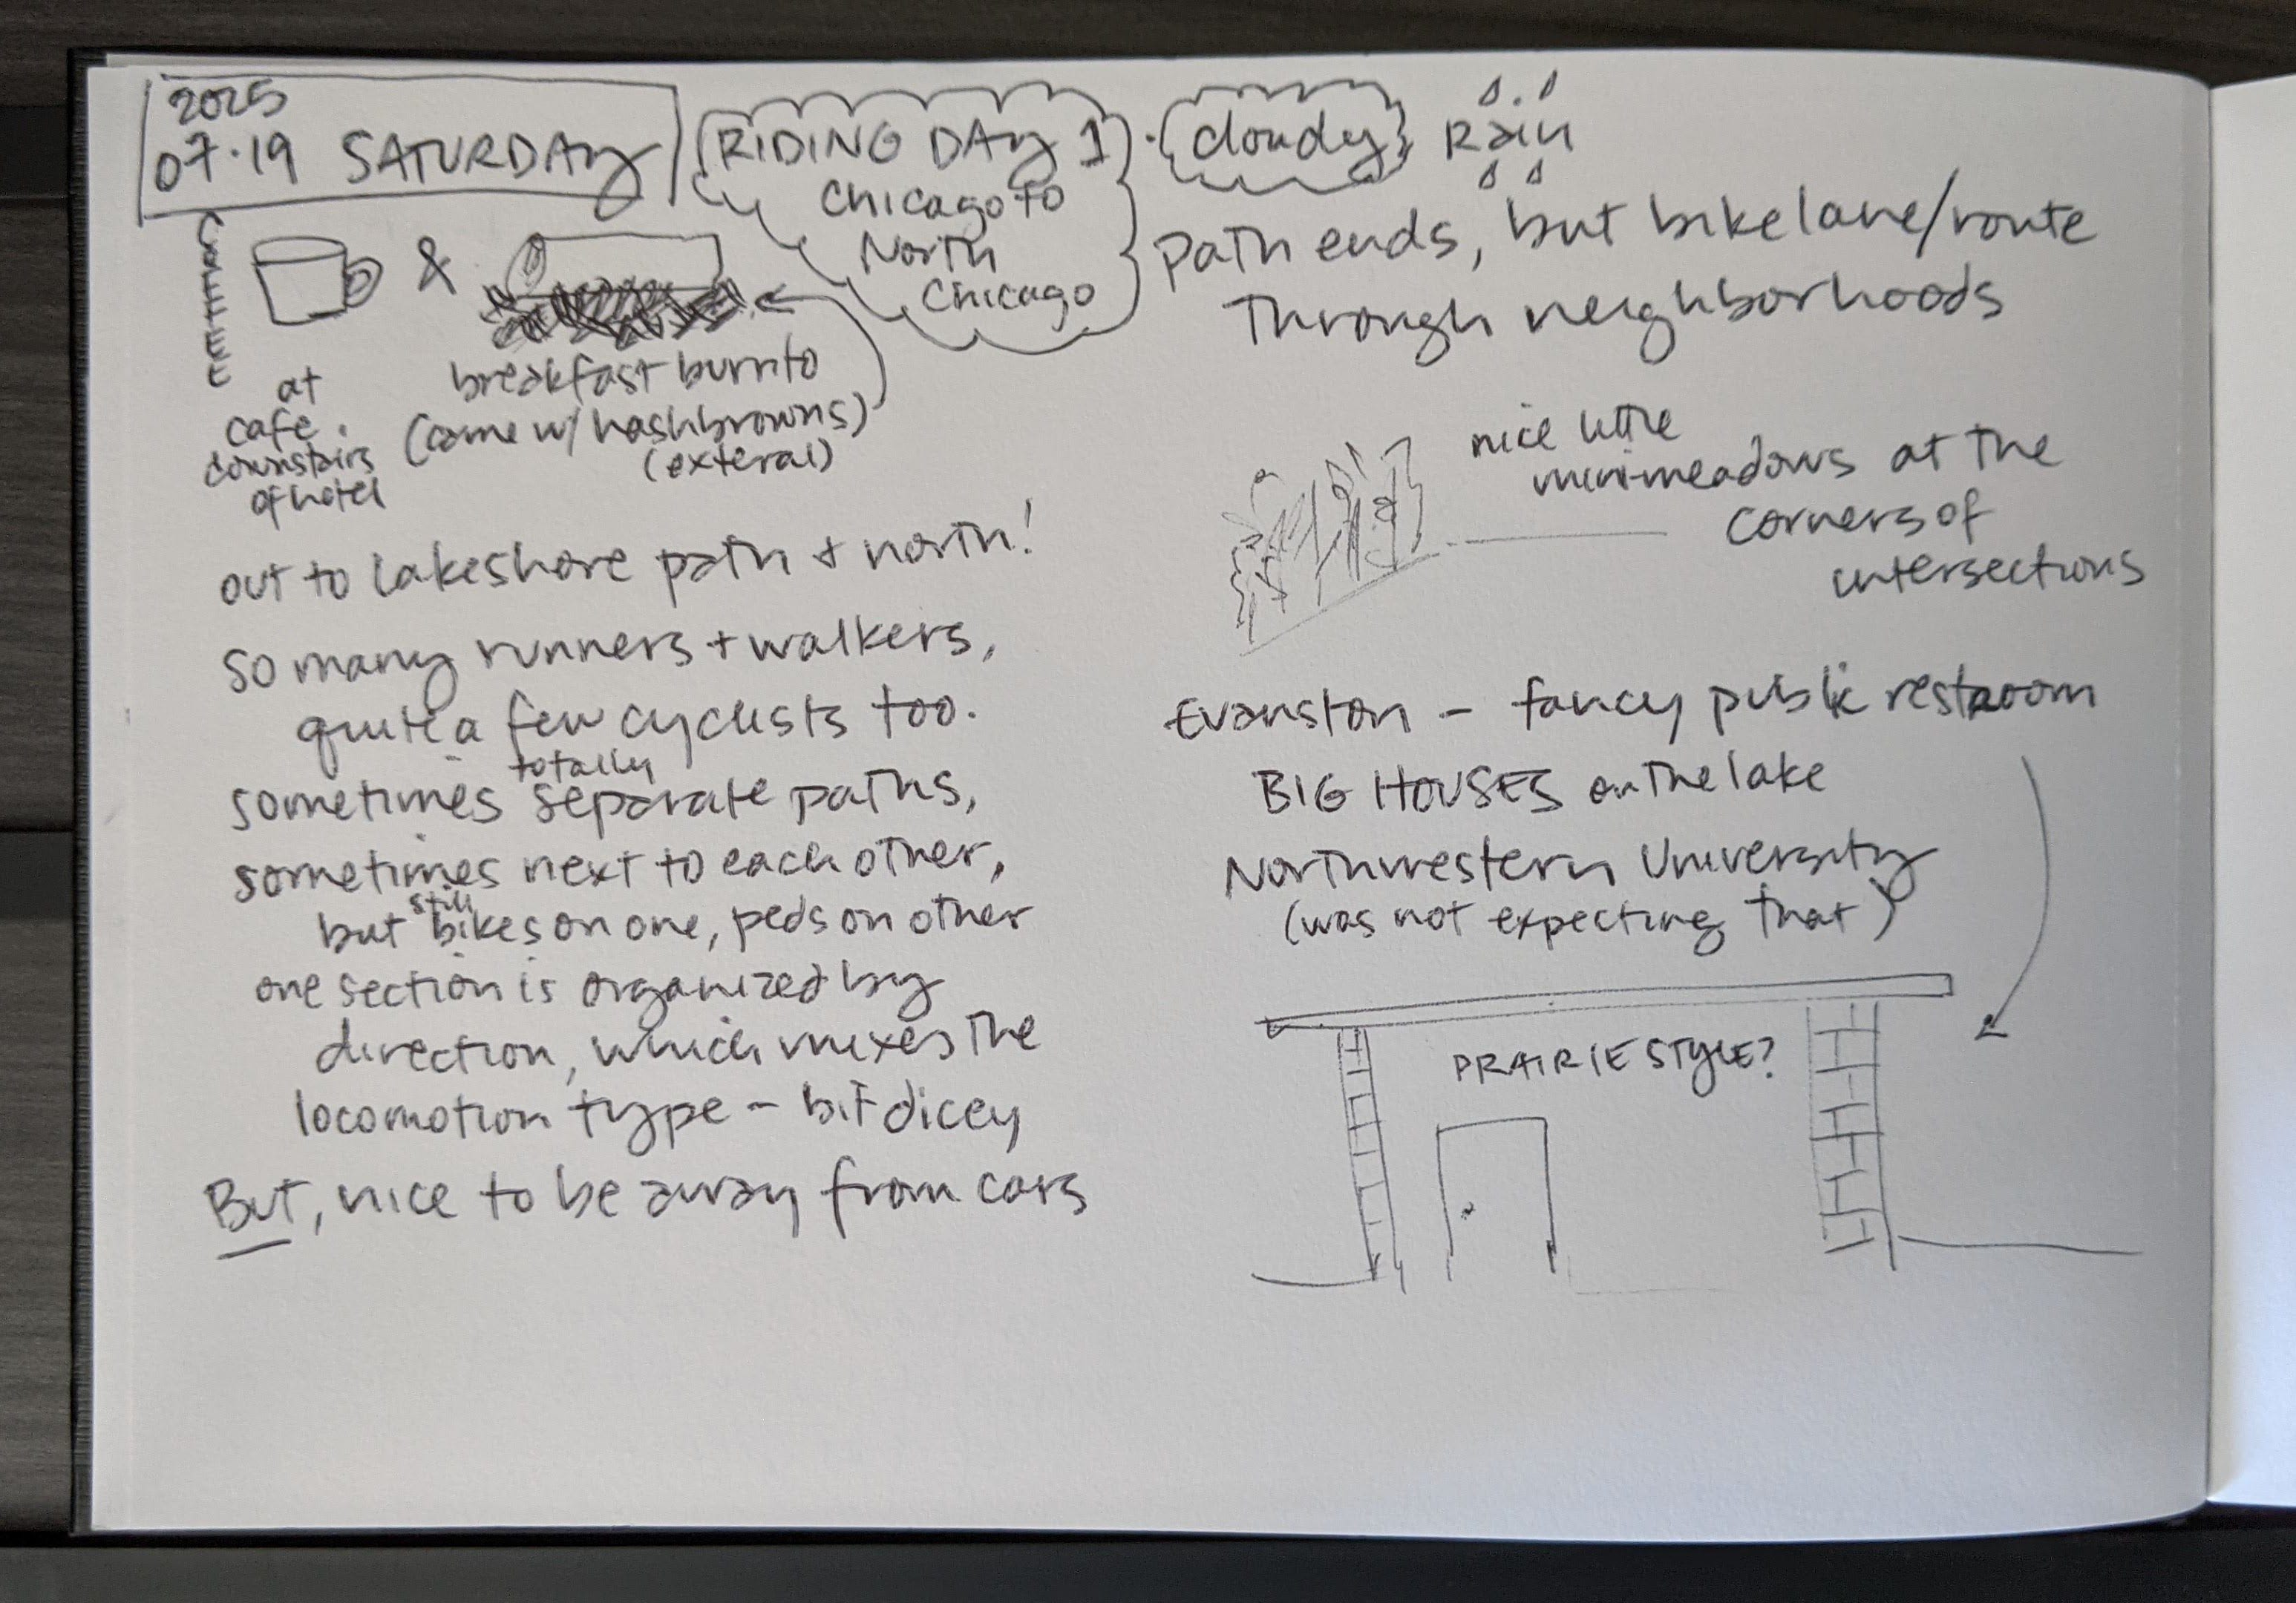 2025
07·19 SATURDAY
RIDING DAY 1
Chicago to
North
Chicago
cloudy
Rain
&
at
cafe
downstairs
of hotel
breakfast burrito
(came w/ hashbrowns)
(exteral)
out to lakeshore path + north!
so many runners + walkers,
quite a few cyclists too.
totally
sometimes separate paths,
sometimes next to each other,
still
but bikes on one, peds on other
one section is organized by
direction, which mixes the
locomotion type - bit dicey
But, nice to be away from cars
path ends, but bike lane/route
Through neighborhoods
nice little
mini-meadows at the
corners of
intersections
Evanston - fancy public restroom
BIG HOUSES on the lake
Northwestern University
(was not expecting that)
PRAIRIE STYLE?